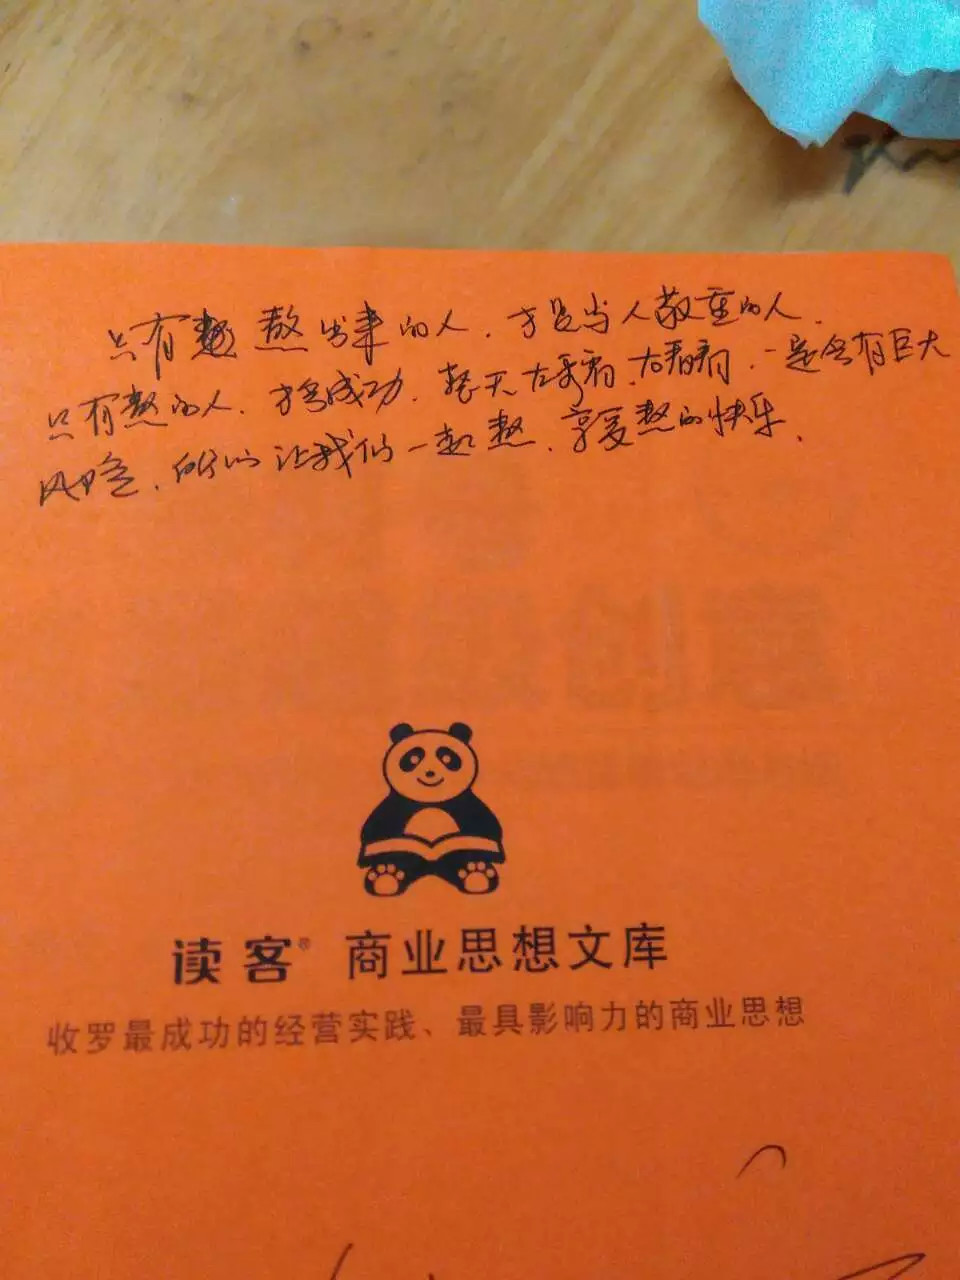 只有熬 熬出来的人，才是当人敬重的人，
只有熬的人，才会成功，整天左看看，右看看，一定会有巨大
风险，所以让我们一起熬，享受熬的快乐，
读客® 商业思想文库
收罗最成功的经营实践、最具影响力的商业思想